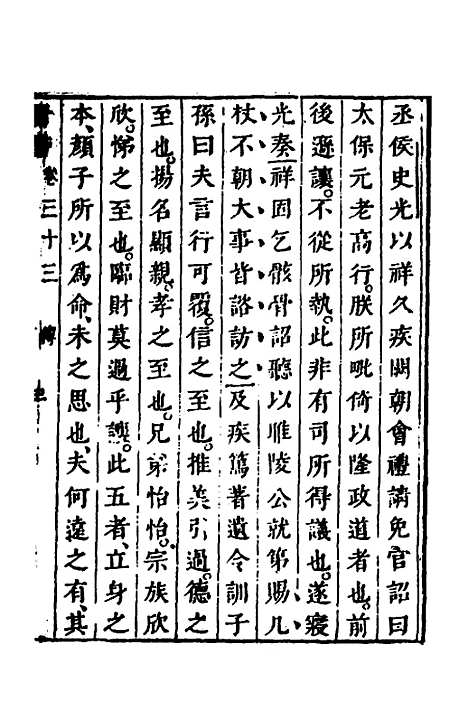 丞侯史光以祥久疾闕朝會禮請免官詔曰
太保元老高行朕所毗倚以隆政道者也前
後遜讓不從所執此非有司所得議也遂寢
光奏祥固乞骸骨詔聽以睢陵公就第賜几
杖不朝大事皆諮訪之及疾篤著遺令訓子
孫曰夫言行可覆信之至也推美引過德之
至也揚名顯親孝之至也兄弟怡怡宗族欣
欣悌之至也臨財莫過乎讓此五者立身之
本顏子所以爲命未之思也夫何遠之有其
卷三十三 傳